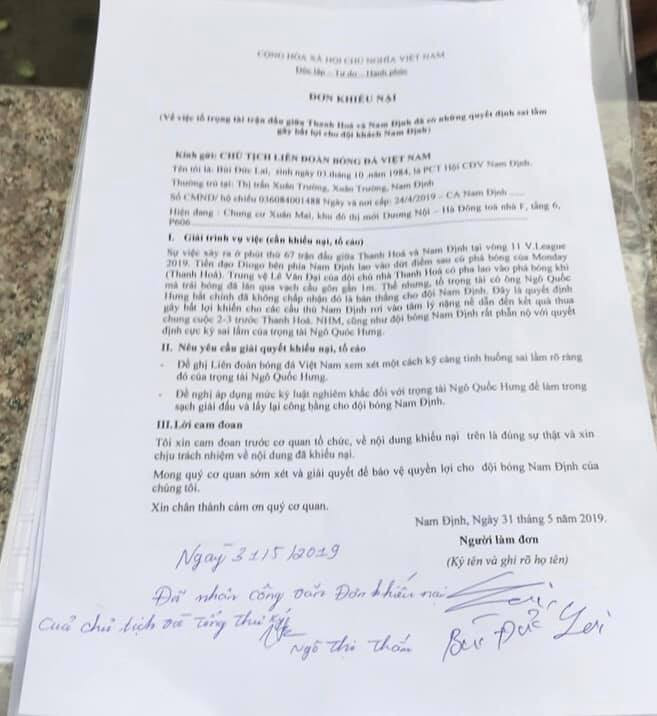 CỘNG HÒA XÃ HỘI CHỦ NGHĨA VIỆT NAM
Độc lập – Tự do – Hạnh phúc
ĐƠN KHIẾU NẠI
(Về việc tổ trọng tài trận đấu giữa Thanh Hoá và Nam Định đã có những quyết định sai lầm
gây bất lợi cho đội khách Nam Định)
Kính gửi: CHỦ TỊCH LIÊN ĐOÀN BÓNG ĐÁ VIỆT NAM
Tên tôi là: Bùi Đức Lai, sinh ngày 03 tháng 10 năm 1984, là PCT Hội CĐV Nam Định.
Thường trú tại: Thị trấn Xuân Trường, Xuân Trường, Nam Định
Số CMND/ hộ chiếu 036084001488 Ngày và nơi cấp: 24/4/2019 – CA Nam Định
Hiện đang : Chung cư Xuân Mai, khu đô thị mới Dương Nội – Hà Đông toà nhà F, tầng 6,
P606
I. Giải trình vụ việc (cần khiếu nại, tố cáo)
Sự việc xảy ra ở phút thứ 67 trận đấu giữa Thanh Hoá và Nam Định tại vòng 11 V.League
2019. Tiền đạo Diogo bên phía Nam Định lao vào dứt điểm sau cú phá bóng của Monday
(Thanh Hoá). Trung vệ Lê Văn Đại của đội chủ nhà Thanh Hoá có pha lao vào phá bóng khi
mà trái bóng đã lăn qua vạch cầu gôn gần 1m. Thế nhưng, tổ trọng tài có ông Ngô Quốc
Hưng bắt chính đã không chấp nhận đó là bàn thắng cho đội Nam Định. Đây là quyết định
gây bất lợi khiến các cầu thủ Nam Định rơi vào tâm lý nặng nề dẫn đến kết quả thua
chung cuộc 2-3 trước Thanh Hoá. NHM, cũng như đội bóng Nam Định rất phẫn nộ với quyết
định cực kỳ sai lầm của trọng tài Ngô Quốc Hưng.
II. Nêu yêu cầu giải quyết khiếu nại, tố cáo
- Đề ghị Liên đoàn bóng đá Việt Nam xem xét một cách kỹ càng tình huống sai lầm rõ ràng
đó của trọng tài Ngô Quốc Hưng.
- Đề nghị áp dụng mức kỷ luật nghiêm khắc đối với trọng tài Ngô Quốc Hưng để làm trong
sạch giải đấu và lấy lại công bằng cho đội bóng Nam Định.
III. Lời cam đoan
Tôi xin cam đoan trước cơ quan tổ chức, về nội dung khiếu nại trên là đúng sự thật và xin
chịu trách nhiệm về nội dung đã khiếu nại.
Mong quý cơ quan sớm xét và giải quyết để bảo vệ quyền lợi cho đội bóng Nam Định của
chúng tôi.
Xin chân thành cảm ơn quý cơ quan.
Nam Định, Ngày 31 tháng 5 năm 2019.
Người làm đơn
(Ký tên và ghi rõ họ tên)
Ngày 31/5/2019
Đã nhân công văn Đơn khiếu nại
Của chủ tịch và tổng thư ký
Ngô Thị Thắm
Bùi Đức Lai